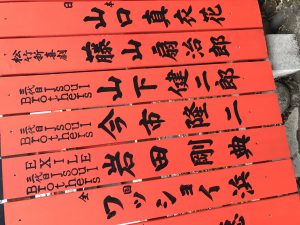 山口真衣花
松竹新喜劇
藤山扇治郎
三代目 J Soul
Brothers
山下健二郎
三代目 J Soul
Brothers
今市隆二
EXILE
三代目 J Soul
Brothers
岩田剛典
ワッショイ浜